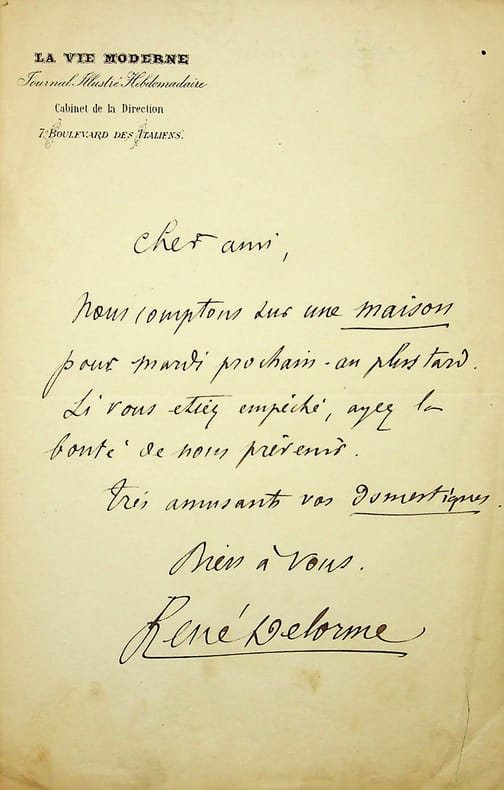 LA VIE MODERNE
Journal Illustré Hebdomadaire
Cabinet de la Direction
7, BOULEVARD DES ITALIENS.
Cher ami,
Nous comptons sur une maison
pour mardi prochain - au plus tard.
Si vous etiez empéché, ayez la
bonté de nous prévenir.
Très amusants vos domestiques.
Bien à vous.
René Delorme